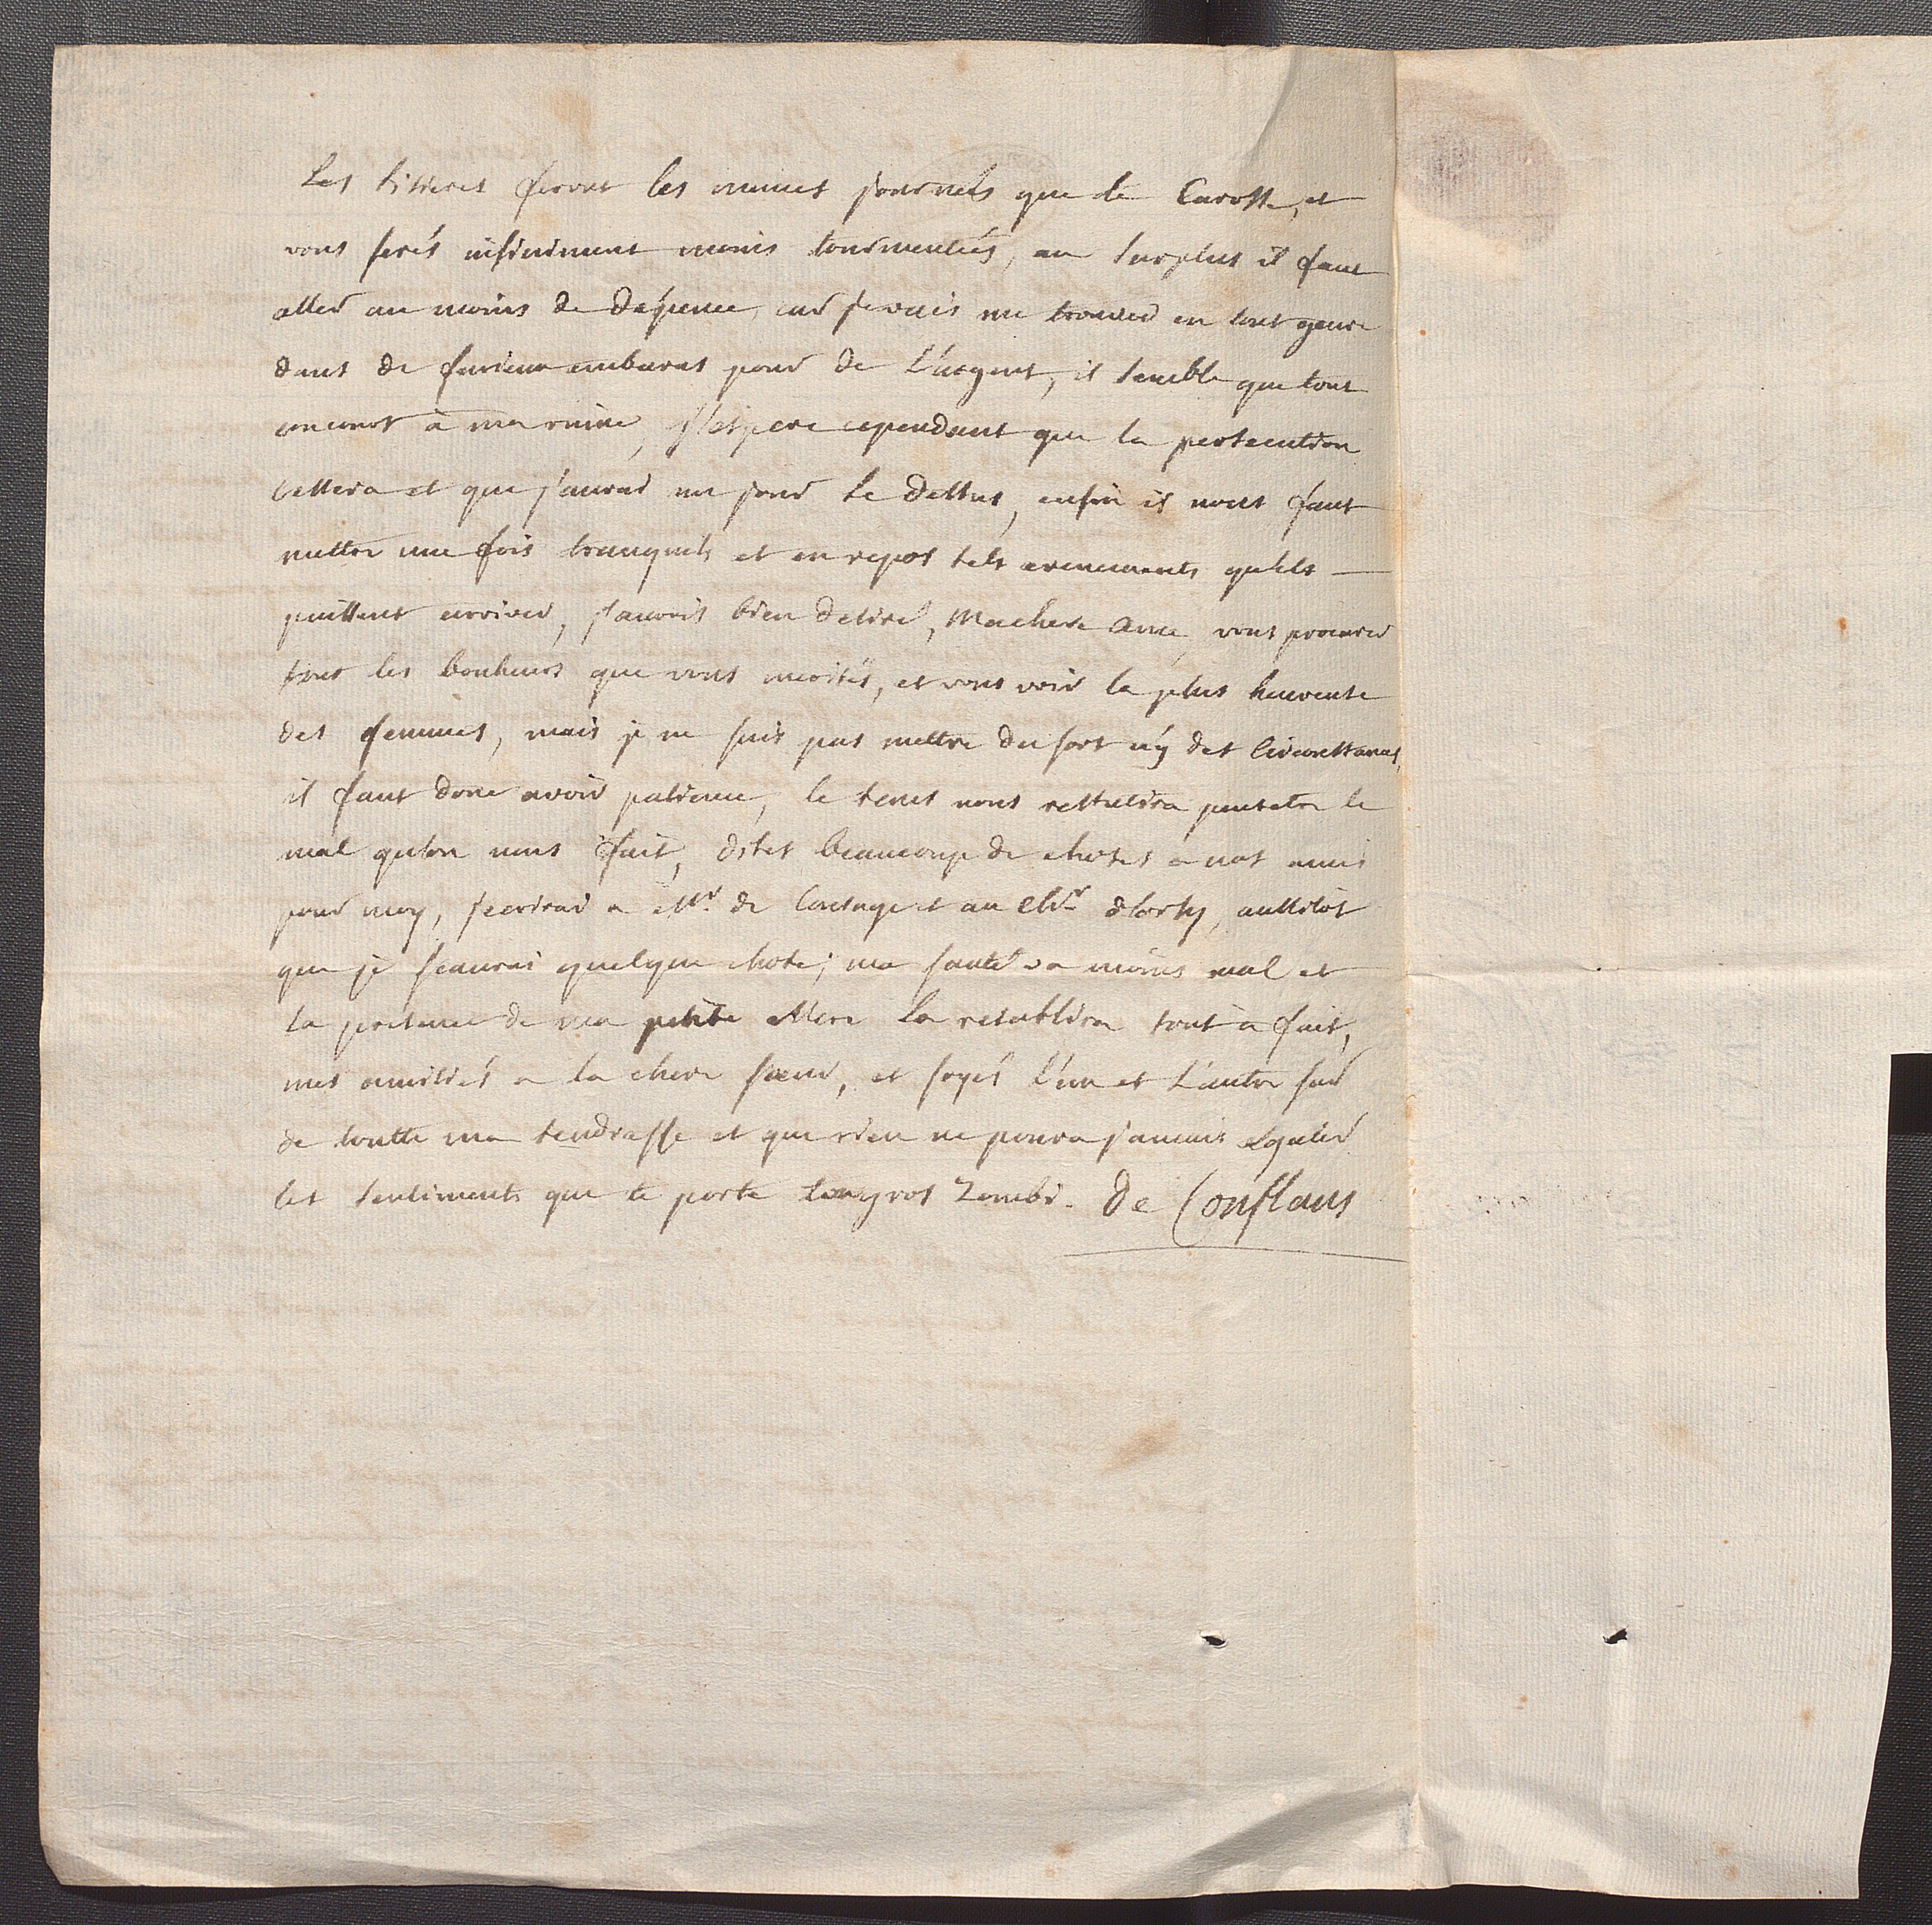 Les littieres feront les mmes journées que le Carosse, et
vous serés infiniment moins tourmentées, au surplus il faut
aller au moins de dépence car je vais me trouver en tout genre
dans de furieux embaras pour de L'argent, il semble que tout
concourt à ma ruine, J'espere cependant que la persecution
cessera et que j'aurai un jour le dessus, enfin il nous faut
mettre une fois tranquils et en repos tels evenements qu'ils
puissent arriver, j'aurois bien desiré, Machere ame, vous procurer
tout les bonheurs que vous merités, et vous voir la plus heureuse
des femmes, mais je ne suis pas mettre du sort n'y des circonstances,
il faut donc avoir patience, le tems nous restituera peutetre le
mal qu'on nous fait, dites beaucoup de choses a nos amis
pour moy, j'ecrirai a Mr. de et au chr. d'Orhy, aussitôt
que je scaurai quelque chose; ma santé va moins mal et
la presence de ma petite Mere la retablira tout à fait,
mes amitiés a la chere soeur, et soyés l'une et L'autre sur
de toutte ma tendresse et que rien ne poura jamais egaler
les sentiments que te porte tongros Zombi. De Conflans